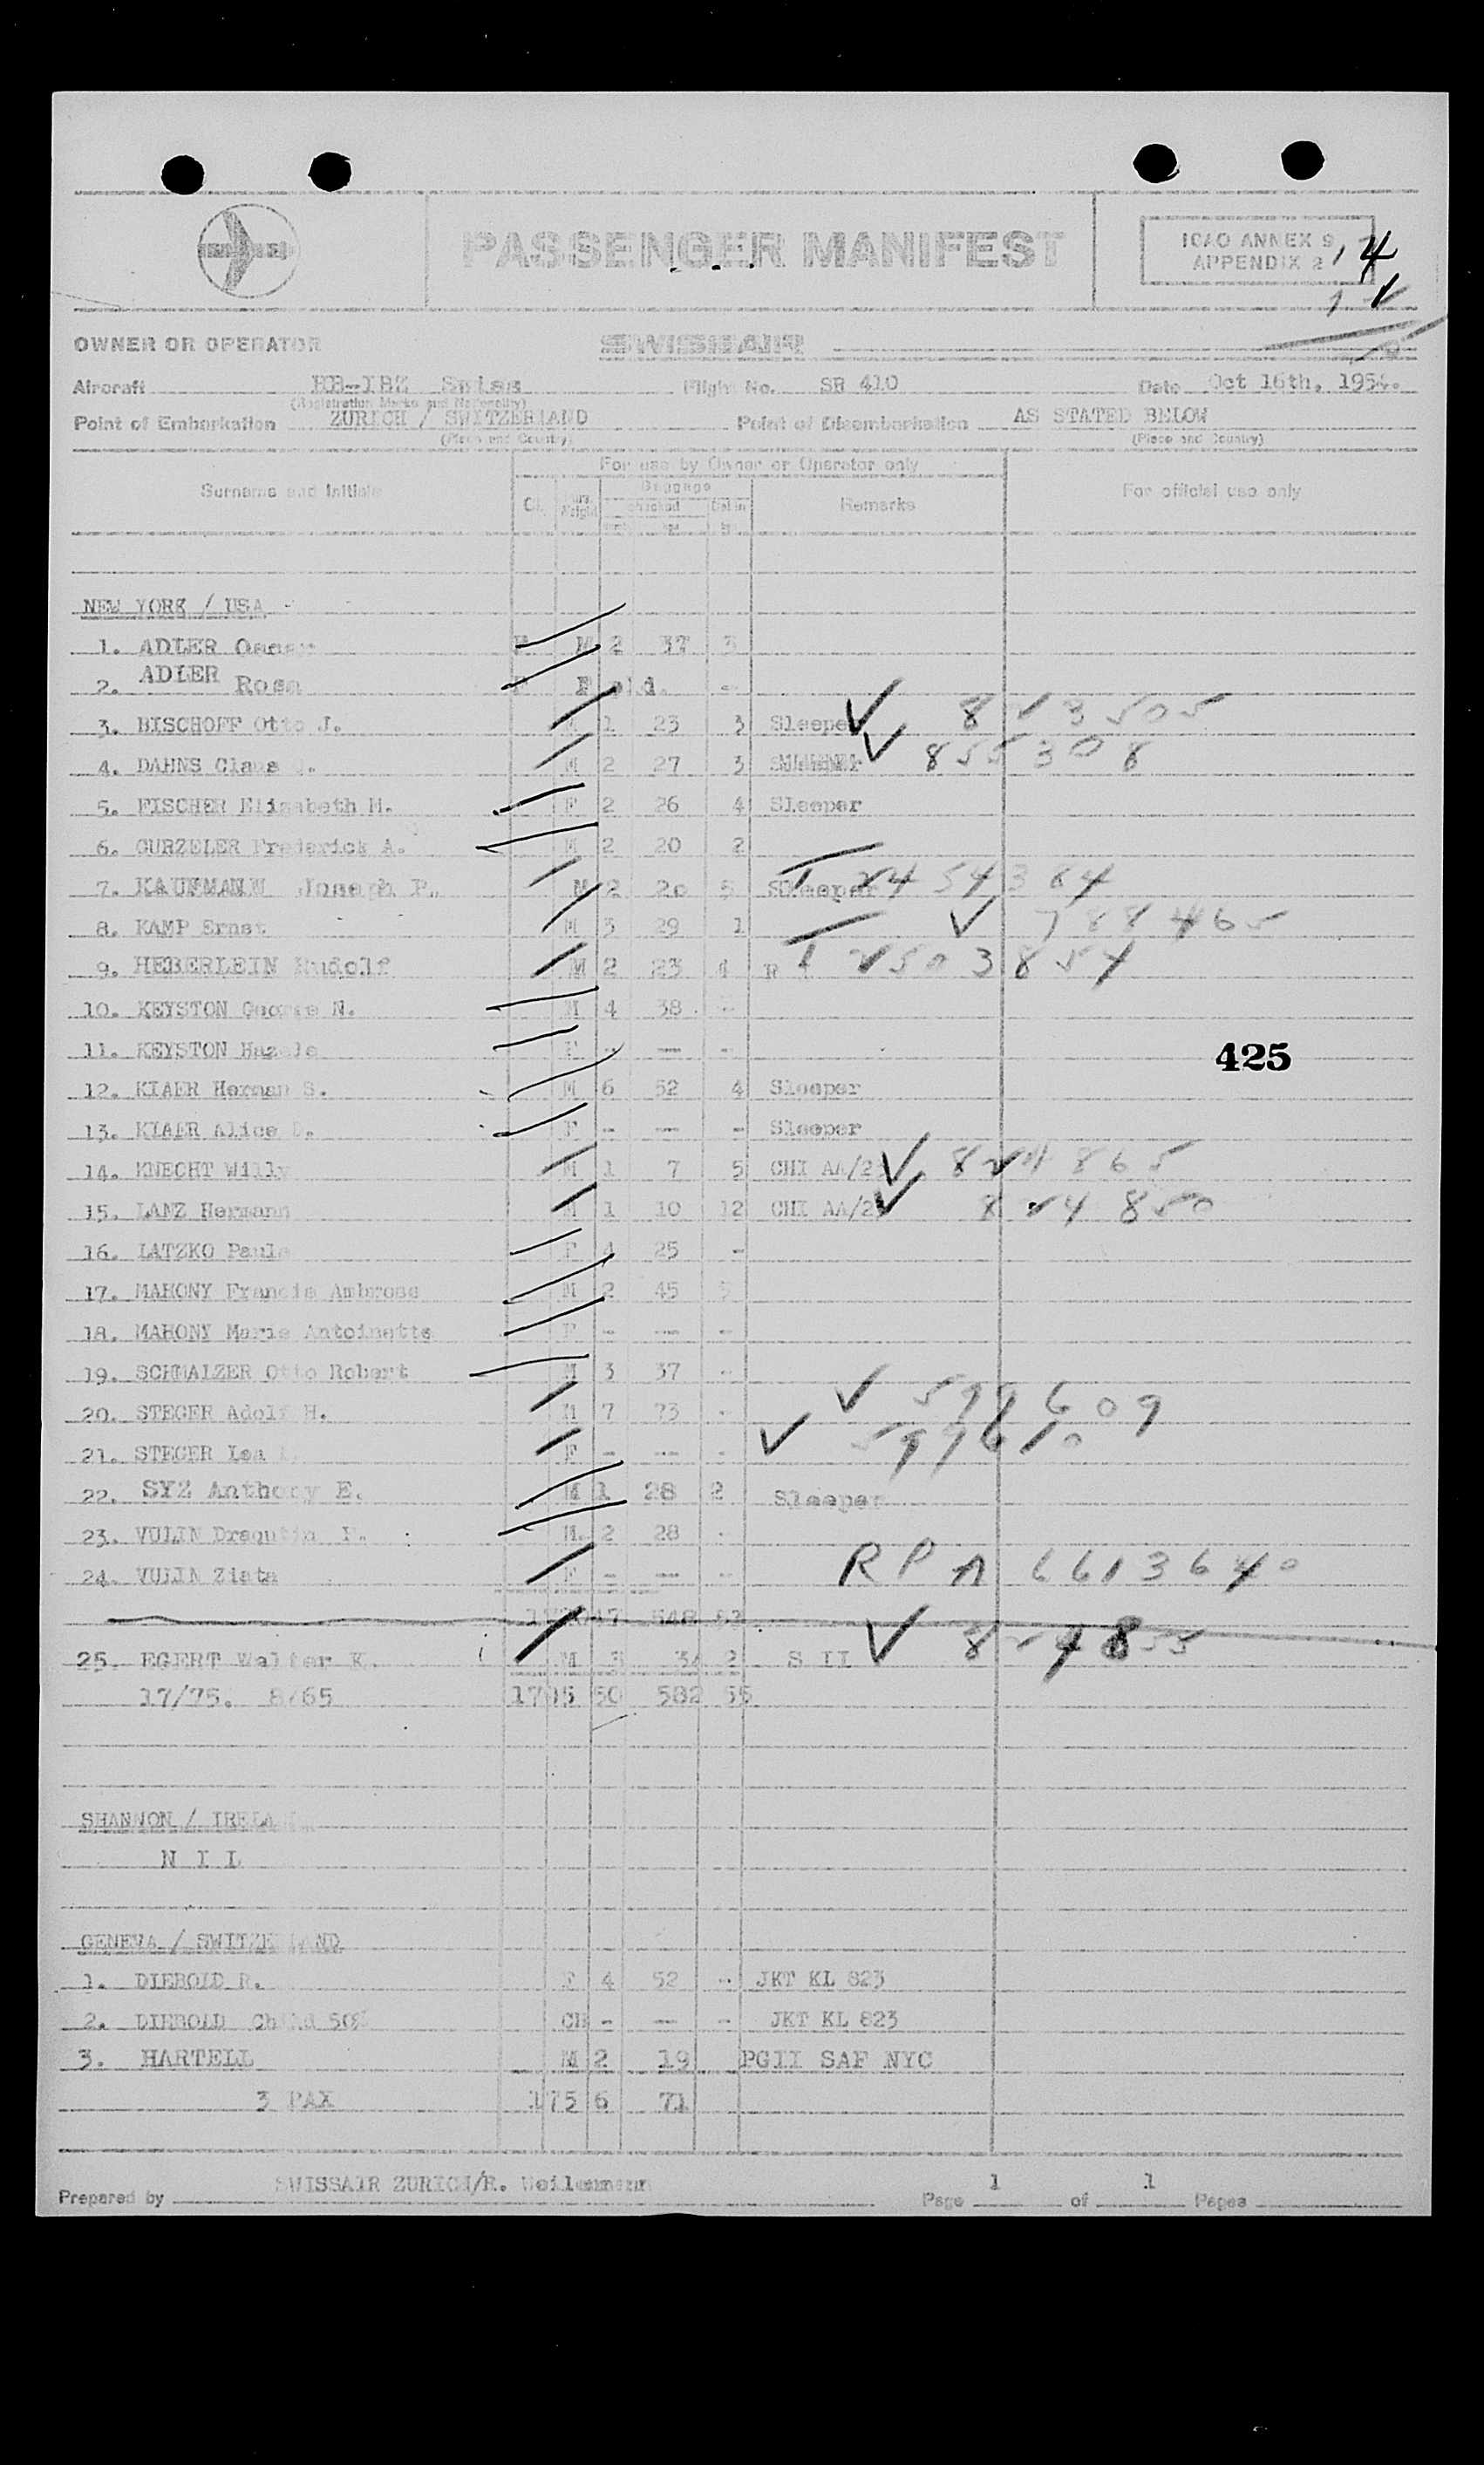 PASSENGER MANIFEST
ICAO ANNEX 9
APPENDIX 2
14
OWNER OR OPERATOR SWISSAIR
Aircraft HB-IBZ Flight No. SR 410 Date Oct 16th, 1954.
(Registration Marks and Nationality)
Point of Embarkation ZURICH / SWITZERLAND Point of Disembarkation AS STATED BELOW
(Place and Country) (Place and Country)
For use by Owner or Operator only
Surname and Initials Cl. Baggage Remarks For official use only
checked
NEW YORK / USA
1. ADLER M 2 37 3
2. ADLER Rosa F
3. BISCHOFF Otto J. M 1 23 3 Sleeper 823505
4. DAHNS Claus M 2 27 3 855308
5. FISCHER Elisabeth M. F 2 26 4 Sleeper
6. GURZELER Frederick A. M 2 20 2
7. KAUFMANN Joseph P. M 2 20 5 Sleeper T 2454364
8. KAMP Ernst M 3 29 1 788465
9. HEBERLEIN Rudolf M 2 23 4 T 2503854
10. KEYSTON George N. M 4 38 -
11. KEYSTON F - - -
425
12. KIAER Herman S. M 6 52 4 Sleeper
13. KIAER Alice D. F - - - Sleeper
14. KNECHT Willy M 1 7 5 CHI AA/2 824865
15. LANZ Hermann M 1 10 12 CHI AA/2 824850
16. LATZKO Paula F 4 25 -
17. MAHONY Francis Ambrose M 2 45 5
18. MAHONY Marie Antoinette F - - -
19. SCHMALZER Otto Robert M 3 37 -
20. STEGER Adolf H. M 7 73 - 599609
21. STEGER Lea F - - - 599610
22. SYZ Anthony E. M 1 28 2 Sleeper
23. VULIN Dragutin F. M. 2 28 -
24. VULIN Zlata F - - - RPA 6613640
47 548 53
25. EGERT Walter K. M 3 34 2 S II 824855
17/75. 8/65 1795 50 582 55
SHANNON / IRELAND
N I L
GENEVA / SWITZERLAND
1. DIEBOLD R. F 4 52 - JKT KL 823
2. DIEBOLD Child 50% CH - - - JKT KL 823
3. HARTELL M 2 19 PGII SAF NYC
3 PAX 175 6 71
Prepared by SWISSAIR ZURICH/R. Weilenmann Page 1 of 1 Pages